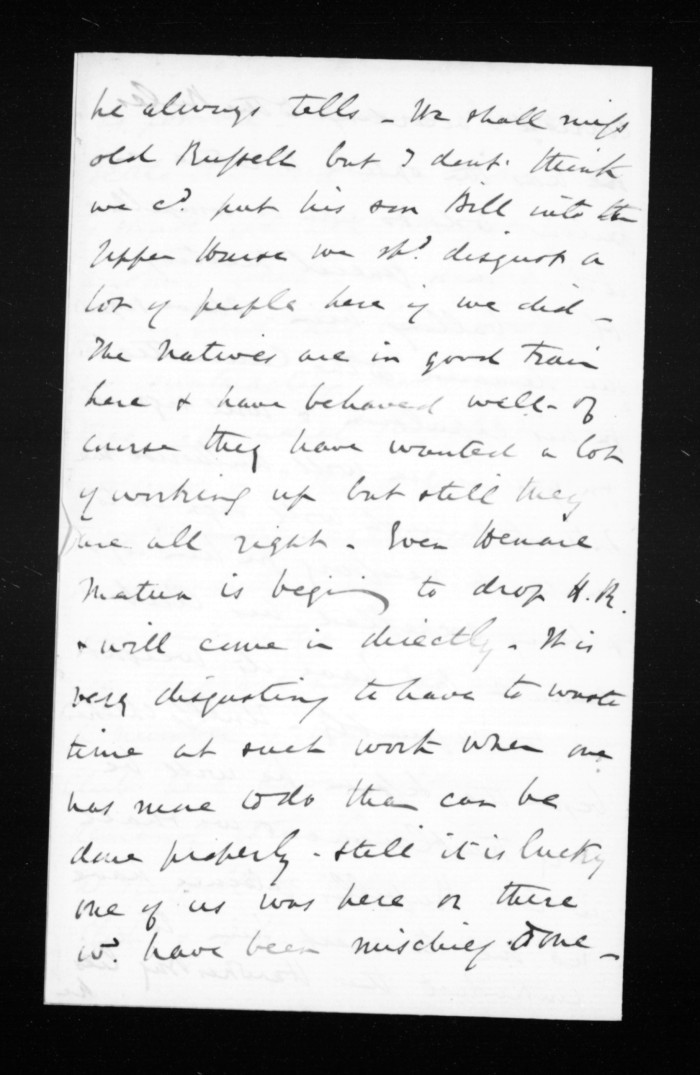 he always tells - We shall miss
old Russell but I dent. think
we cd. put his son Bill into the
Upper House we shd. disgust a
lot of people here if we did -
The Natives are in good train
here & have behaved well - of
course they have wanted a lot
of working up but still they
are all right - Even Henare
Matua is begining to drop H.R.
& will come in directly - It is
very disgusting to have to waste
time at such work when one
has more to do than can be
done properly - still it is lucky
one of us was here or there
wd. have been mischief done -